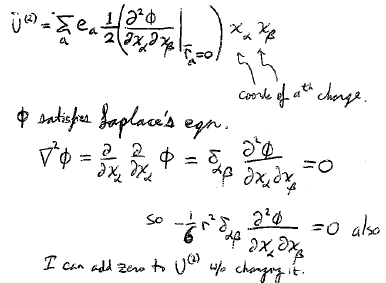 U⁽²⁾ = Σₐ eₐ 1/2 (∂²Φ/∂x_α∂x_β |_{r̄ₐ=0}) x_α x_β
coords of aᵗʰ charge.
Φ satisfies Laplace's eqn.
∇²Φ = ∂/∂x_α ∂/∂x_α Φ = δ_αβ ∂²Φ/∂x_α∂x_β = 0
so -1/6 r² δ_αβ ∂²Φ/∂x_α∂x_β = 0 also
I can add zero to U⁽²⁾ w/o changing it.